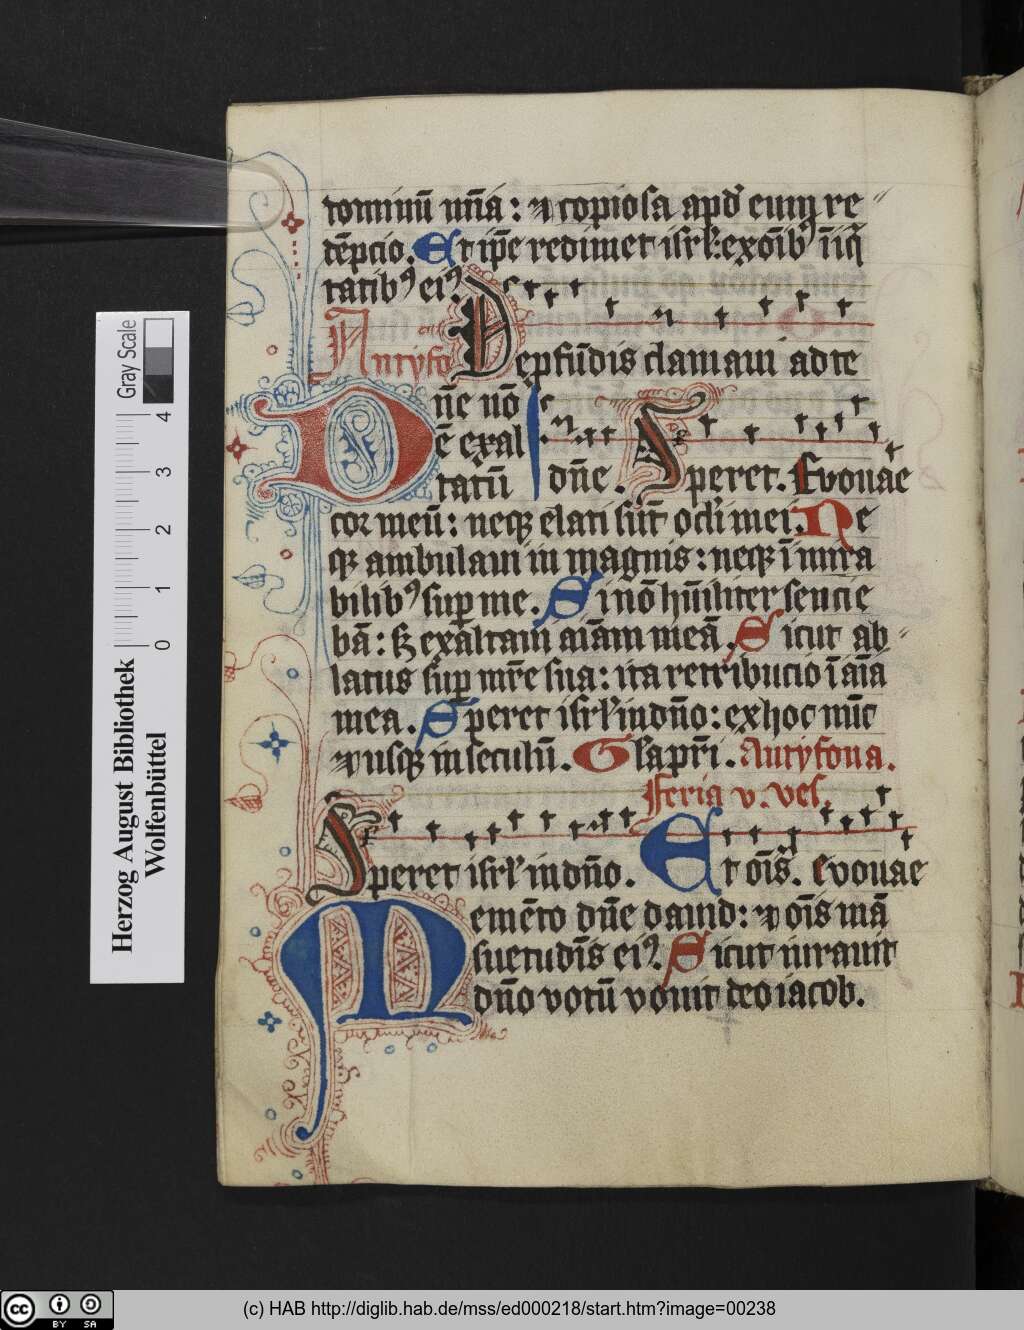 dominū mīa : ⁊ copiosa apđ eum re〃
dēpcio . Et ip̄e redimet isrl̓ : ex oīb⁹ īiq̄
tatib⁹ ei⁹ .
Antyfo De pfūdis clamaui ad te
dn̄e . Speret . Evouae
Dn̄e nō
ē exal
tatū
cor meū : neqꝫ elati sūt oc̄li mei . Ne
qꝫ ambulaui in magnis : neqꝫ ī mira
bilib⁹ sup me . Si nō hūiliter sencie
bā : sꝫ exaltaui aīam meā . Sicut ab〃
latus sup mr̄e sua : ita retribucio ī aīa
mea . Speret isrl̓ in dn̄o : ex hoc nūc
⁊ usqꝫ in seculū . Gl̄a pr̄i . Antyfona .
Feria v . ves .
Speret isrl̓ in dn̄o . Et oīs . Evouae
Memēto dn̄e dauid : ⁊ oīs mā
suetudīs ei⁹ . Sicut iurauit
dn̄o votū vouit deo iacob .
Herzog August Bibliothek
Wolfenbüttel
Gray Scale
0 1 2 3 4
cc BY SA
(c) HAB http://diglib.hab.de/mss/ed000218/start.htm?image=00238